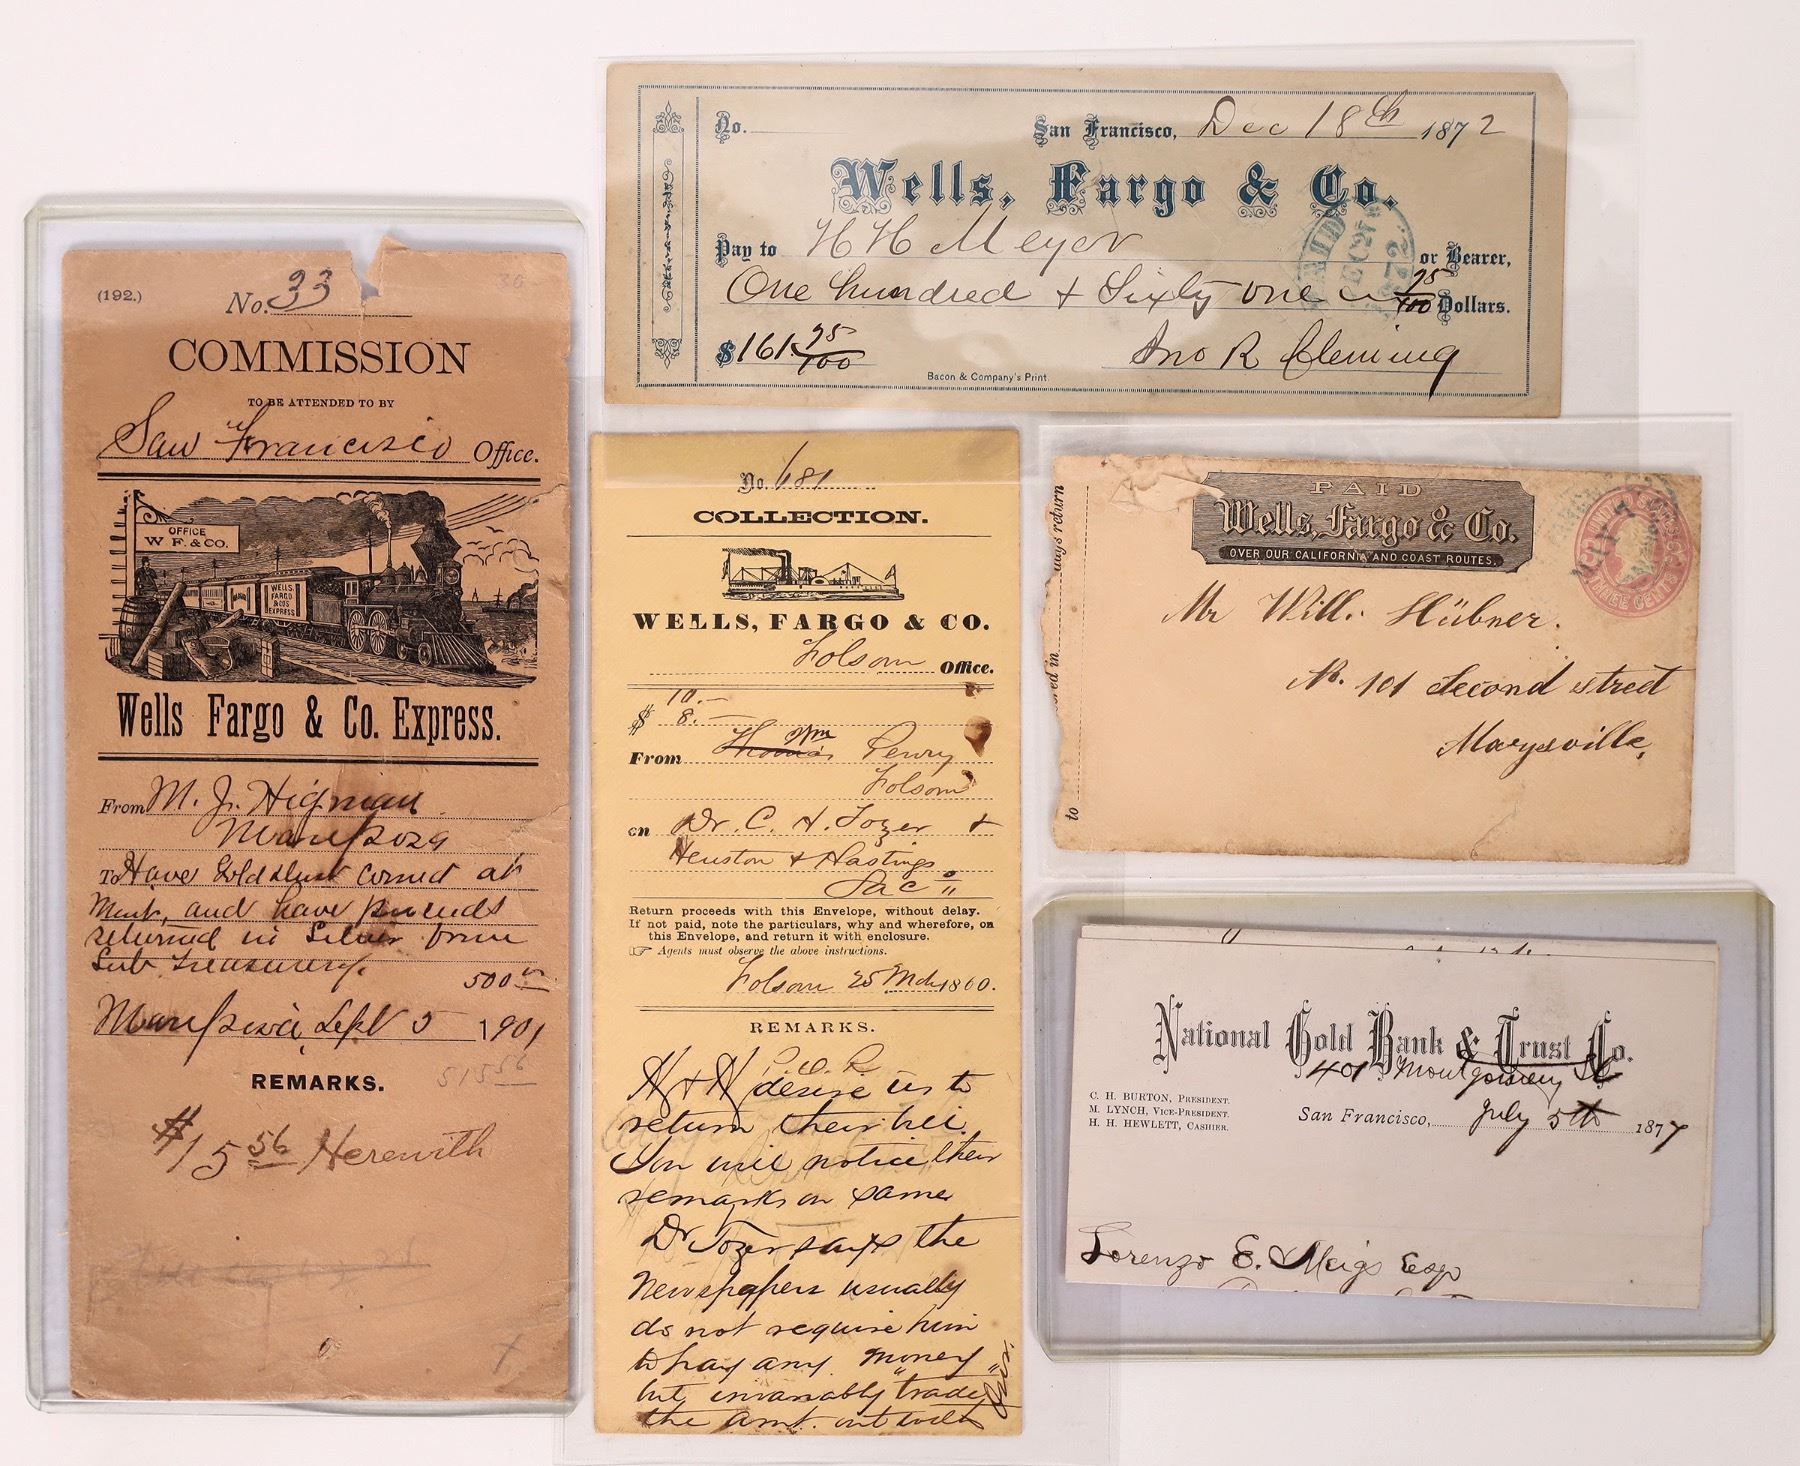 (192.)
No. 33
30
COMMISSION
TO BE ATTENDED TO BY
San Francisco Office.
OFFICE
W F. & CO.
WELLS
FARGO
& COS
EXPRESS
Wells Fargo & Co. Express.
From M. J. Higman
Mariposa
To Have Gold dust coined at
Mint, and have proceeds
returned in Silver from
Sub Treasurery.
500
Mariposa, Sept 5 1901
REMARKS.
515 56
$15 56 Herewith
No.
San Francisco, Dec 18th 1872
Wells, Fargo & Co.
Pay to H H Meyer or Bearer,
One hundred & Sixty one 75/100 Dollars.
$161.75/100
Jno R Cleming
Bacon & Company's Print.
PAID
DEC 21
1872
No. 681
COLLECTION.
WELLS, FARGO & CO.
Folsom Office.
10.-
$ 8.-
Wm
From Thomas Perry
Folsom
on Dr. C. H. Tozer &
Heuston & Hastings
Sac
Return proceeds with this Envelope, without delay.
If not paid, note the particulars, why and wherefore, on
this Envelope, and return it with enclosure.
☞ Agents must observe the above instructions.
Folsom 25 Mch 1860.
REMARKS.
P. O. R
H & H desire us to
return their bill.
You will notice their
remarks on same
Dr Tozer says the
Newspapers usually
do not require him
to pay any money
but invariably "trade"
the amt. out with
Over.
PAID
Wells, Fargo & Co.
OVER OUR CALIFORNIA AND COAST ROUTES.
THREE CENTS
Mr Will. Hübner.
No. 101 Second street
Marysville,
days return
to
National Gold Bank & Trust Co.
401 Montgomery St
C. H. BURTON, PRESIDENT.
M. LYNCH, VICE-PRESIDENT.
H. H. HEWLETT, CASHIER.
San Francisco, July 5th 1877
Lorenzo E. Meigs Esqr